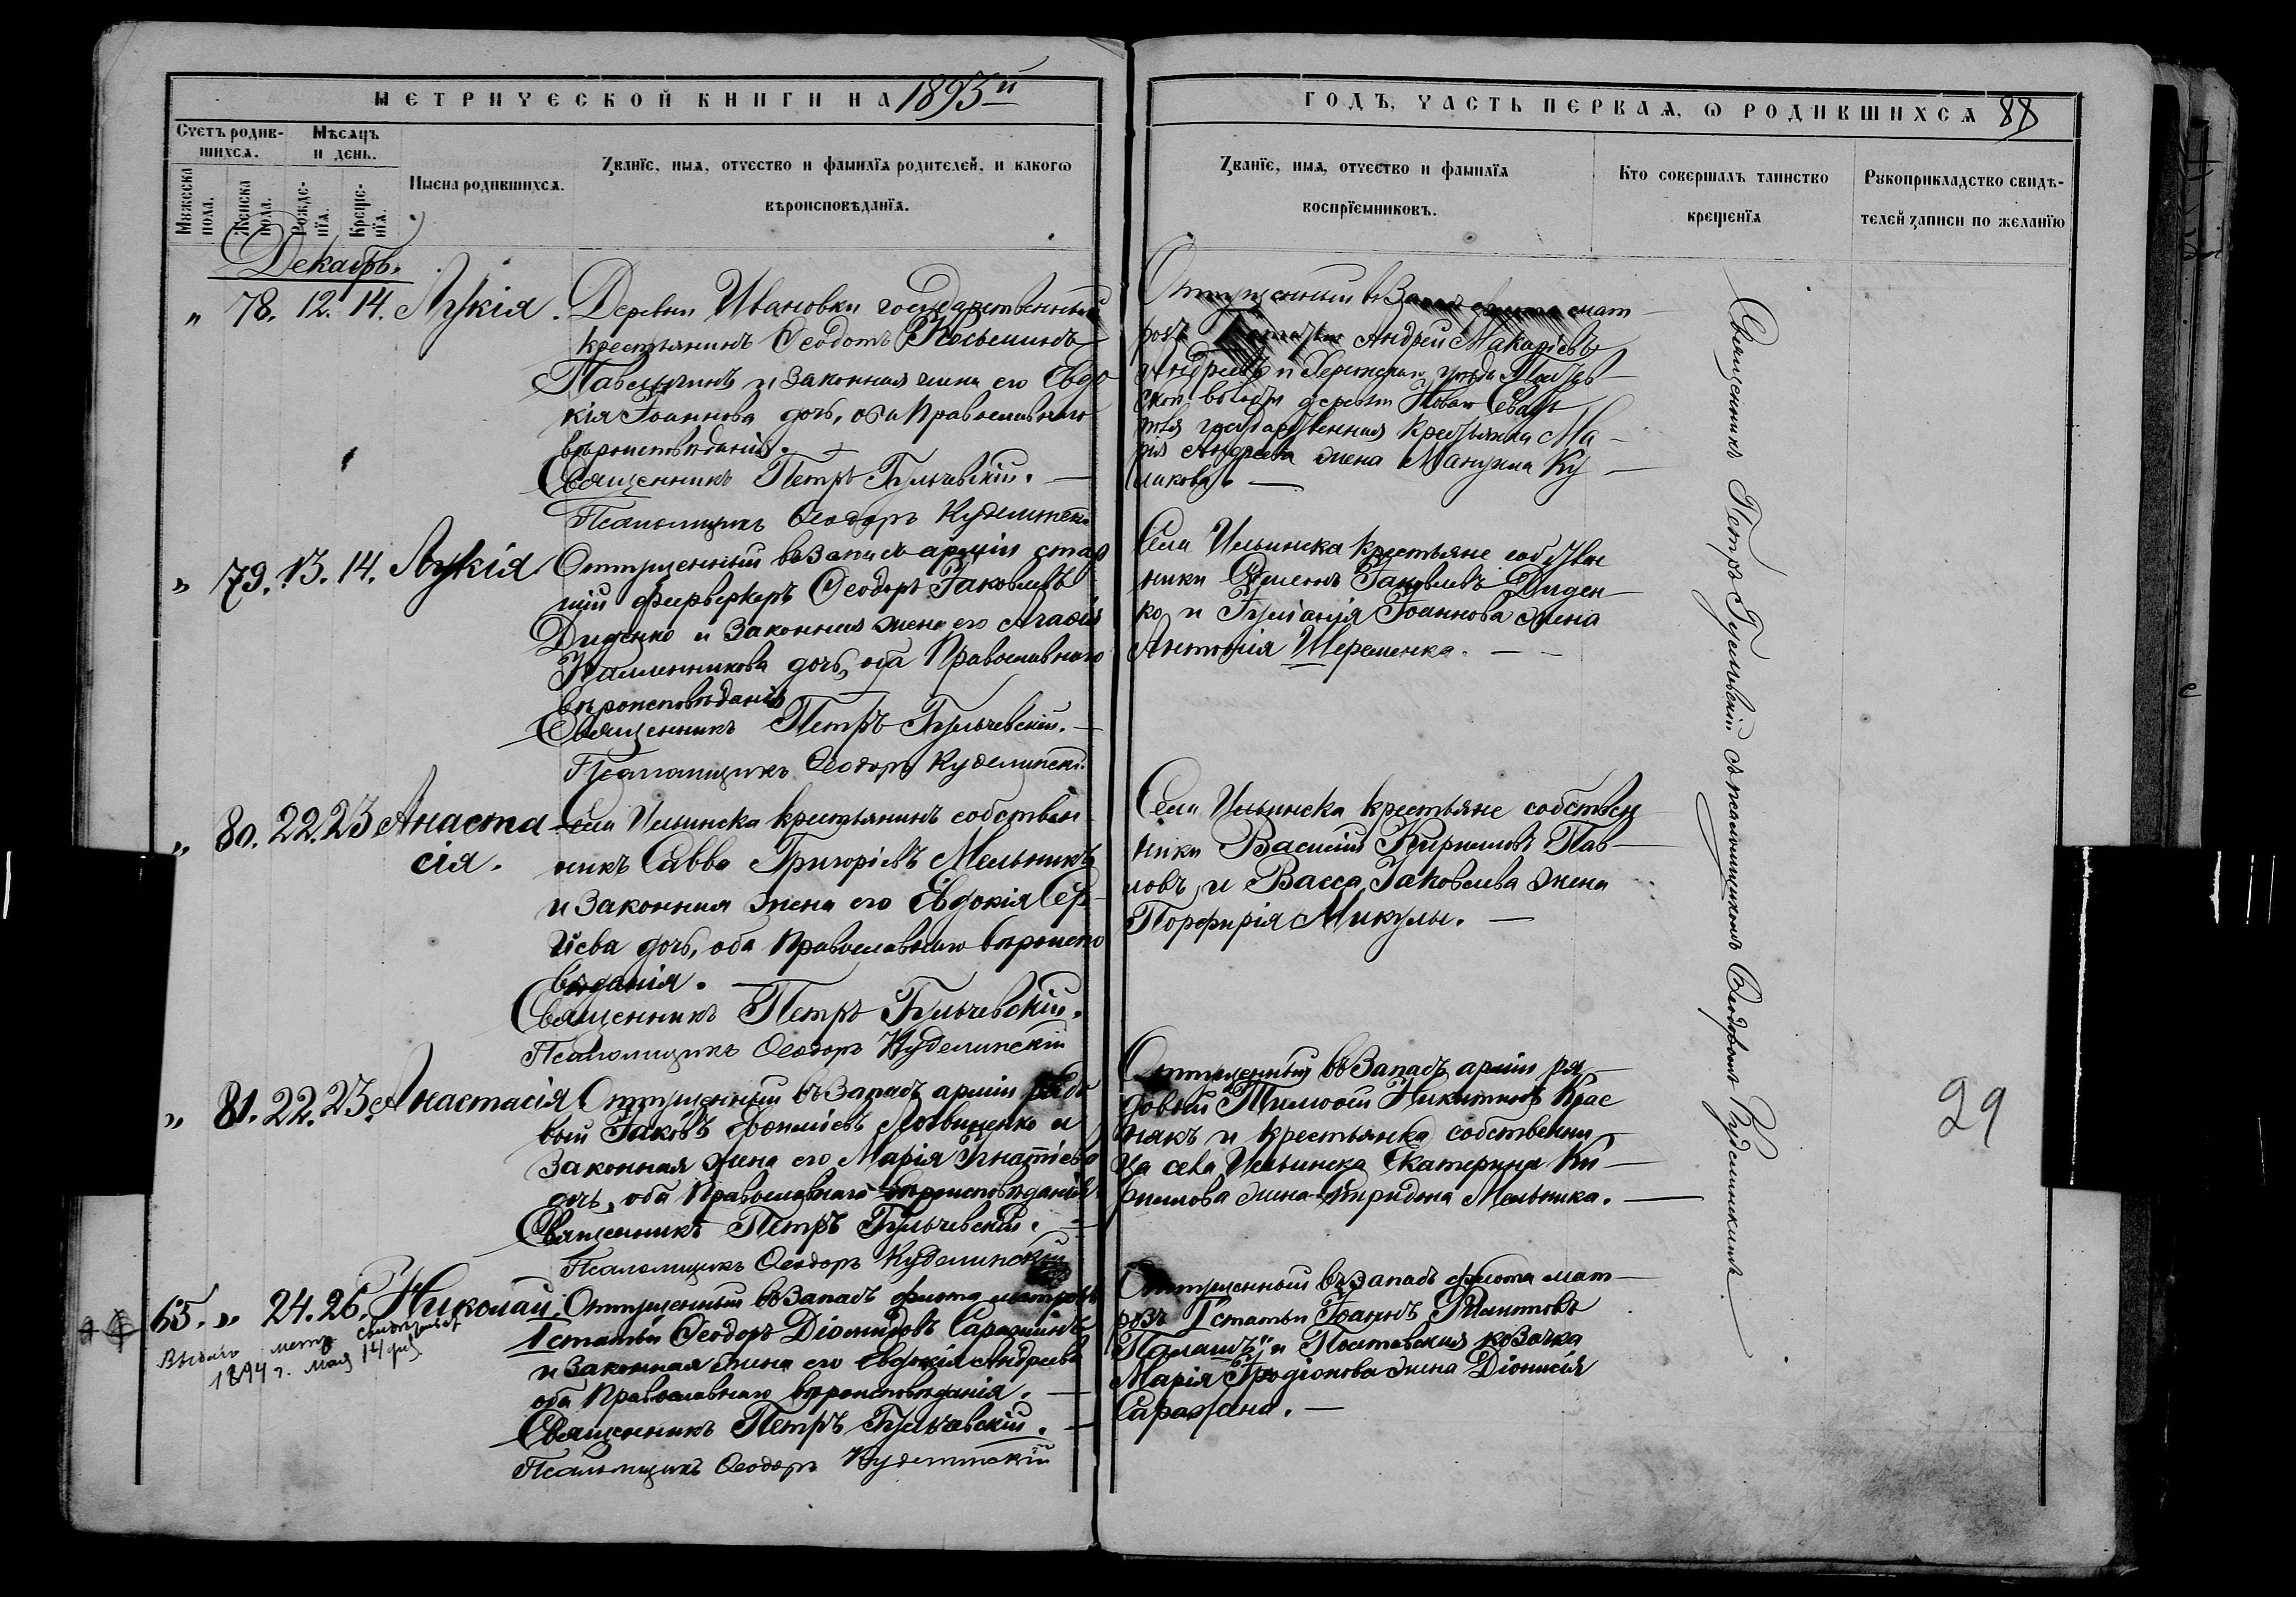 МЕТРИЧЕСКОЙ КНИГИ НА 1893й
ГОДЪ, ЧАСТЬ ПЕРВАЯ, Ѡ РОДИВШИХСЯ 88
Счетъ родив-
шихся.
Мѣсяцъ
и день.
Мужеска
пола.
Женска
пола.
Рожде-
нїя.
Креще-
нїя.
Имена родившихся.
Званїе, имя, отчество и фамилїя родителей, и какогѡ
вѣроисповѣданїя.
Званїе, имя, отчество и фамилїя
воспрїемниковъ.
Кто совершалъ таинство
крещенїя
Рукоприкладство свидѣ-
телей записи по желанїю
Декабрь.
" 78. 12. 14. Лукія. Деревни Ивановки государственный
крестьянинъ Ѳеодотъ Косьминъ
и законная жена его Евдо
кія Іоаннова дочь, оба Православнаго
вѣроисповѣданія.
Священникъ Петръ Бульчевскій.
Псаломщикъ Ѳеодоръ Куделинскій
Отпущенный въ Запасъ флота мат
розъ Андрей Макаріевъ
Андреевъ и Херсонскаго уѣзда
волости деревни Новой
государственная крестьянка Ма
рія Андреева жена Мануила Ку
ликова.
" 79. 13. 14. Лукія Отпущенный въ Запасъ арміи стар
шій фейерверкеръ Ѳеодоръ Іаковлевъ
Диденко и законная жена его Агаѳія
дочь, оба Православнаго
вѣроисповѣданія
Священникъ Петръ Бульчевскій.
Псаломщикъ Ѳеодоръ Куделинскій
Села Ильинска крестьяне собствен
ники Сѵмеонъ Іаковлевъ Диден
ко и Іуліанія Іоаннова жена
Антонія Шеременка.
" 80. 22. 23 Анаста
сія.
Села Ильинска крестьянинъ собствен
никъ Савва Григоріевъ Мельникъ
и законная жена его Евдокія Сер
гіева дочь, оба Православнаго вѣроиспо
вѣданія.
Священникъ Петръ Бульчевскій.
Псаломщикъ Ѳеодоръ Куделинскій
Села Ильинска крестьяне собствен
ники Василій Кирилловъ Пав
ловъ и Васса Іаковлева жена
Порфирія Микулы.
" 81. 22. 23. Анастасія Отпущенный въ Запасъ арміи рядо
вый Іаковъ Логвиненко и
законная жена его Марія Игнатіева
дочь, оба Православнаго вѣроисповѣданія.
Священникъ Петръ Бульчевскій.
Псаломщикъ Ѳеодоръ Куделинскій
Отпущенный въ Запасъ арміи ря
довый Тимоѳей Никитинъ Крас
някъ и крестьянка собственни
ца села Ильинска Екатерина Ки
риллова жена Спиридона Мельника.
65. " 24. 26. Николай. Отпущенный въ Запасъ флота матрозъ
1 статьи Ѳеодоръ Діомидовъ
и законная жена его Евдокія Андреева
оба Православнаго вѣроисповѣданія.
Священникъ Петръ Бульчевскій.
Псаломщикъ Ѳеодоръ Куделинскій
Отпущенный въ запасъ флота мат
розъ I статьи Іоаннъ Филипповъ
и Полтавская козачка
Марія Иродіонова жена Діонисія
Выдано метр свидѣтельст
1894 г. мая 14 дня
Священникъ Петръ Бульчевскій съ псаломщикомъ Ѳеодоромъ Куделинскимъ
29